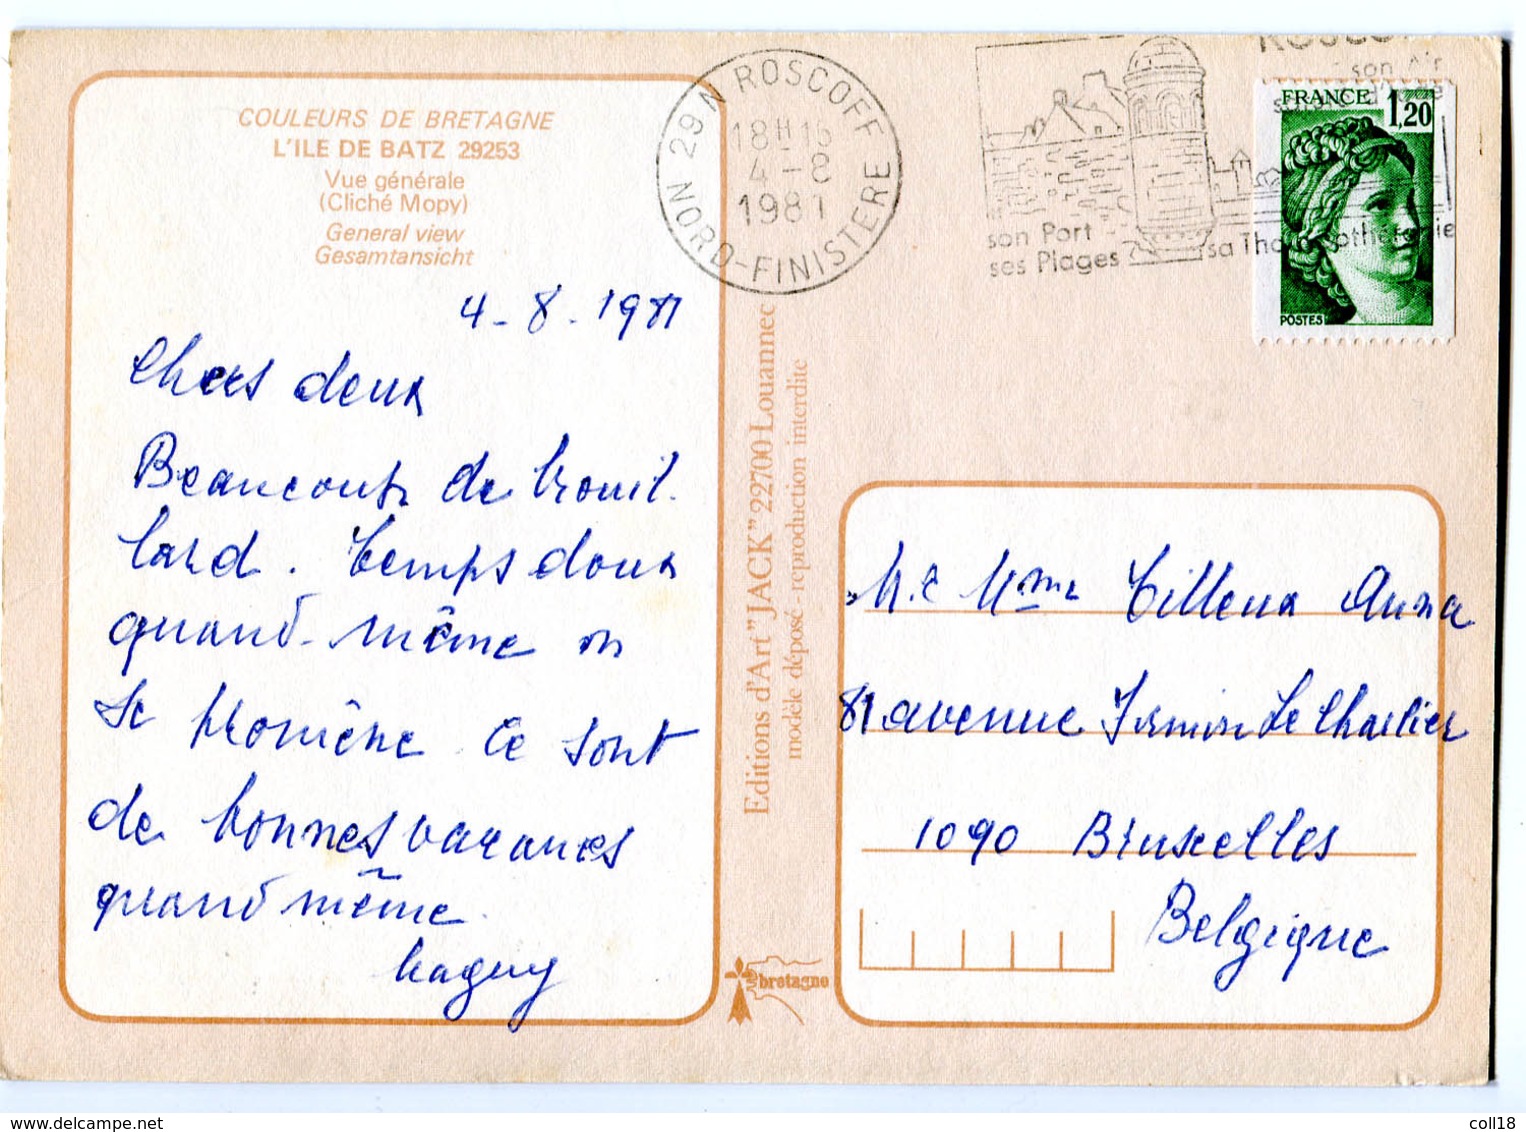 COULEURS DE BRETAGNE
L'ILE DE BATZ 29253
Vue générale
(Cliché Mopy)
General view
Gesamtansicht
4-8-1981
Chers deux
Beaucoup de brouil-
lard. Temps doux
quand-même on
se promène. Ce sont
de bonnes vacances
quand même.
Editions d'Art "JACK" 22700 Louannec
modèle déposé - reproduction interdite
bretagne
29 N ROSCOFF
18H15
4-8
1981
NORD-FINISTERE
ROSCOFF
son Air
son Port
ses Plages
sa Thalassothérapie
FRANCE 1,20
POSTES
M. e Mme Tilleux Anna
81 avenue Firmin Le Charlier
1090 Bruxelles
Belgique
www.delcampe.net
coll18